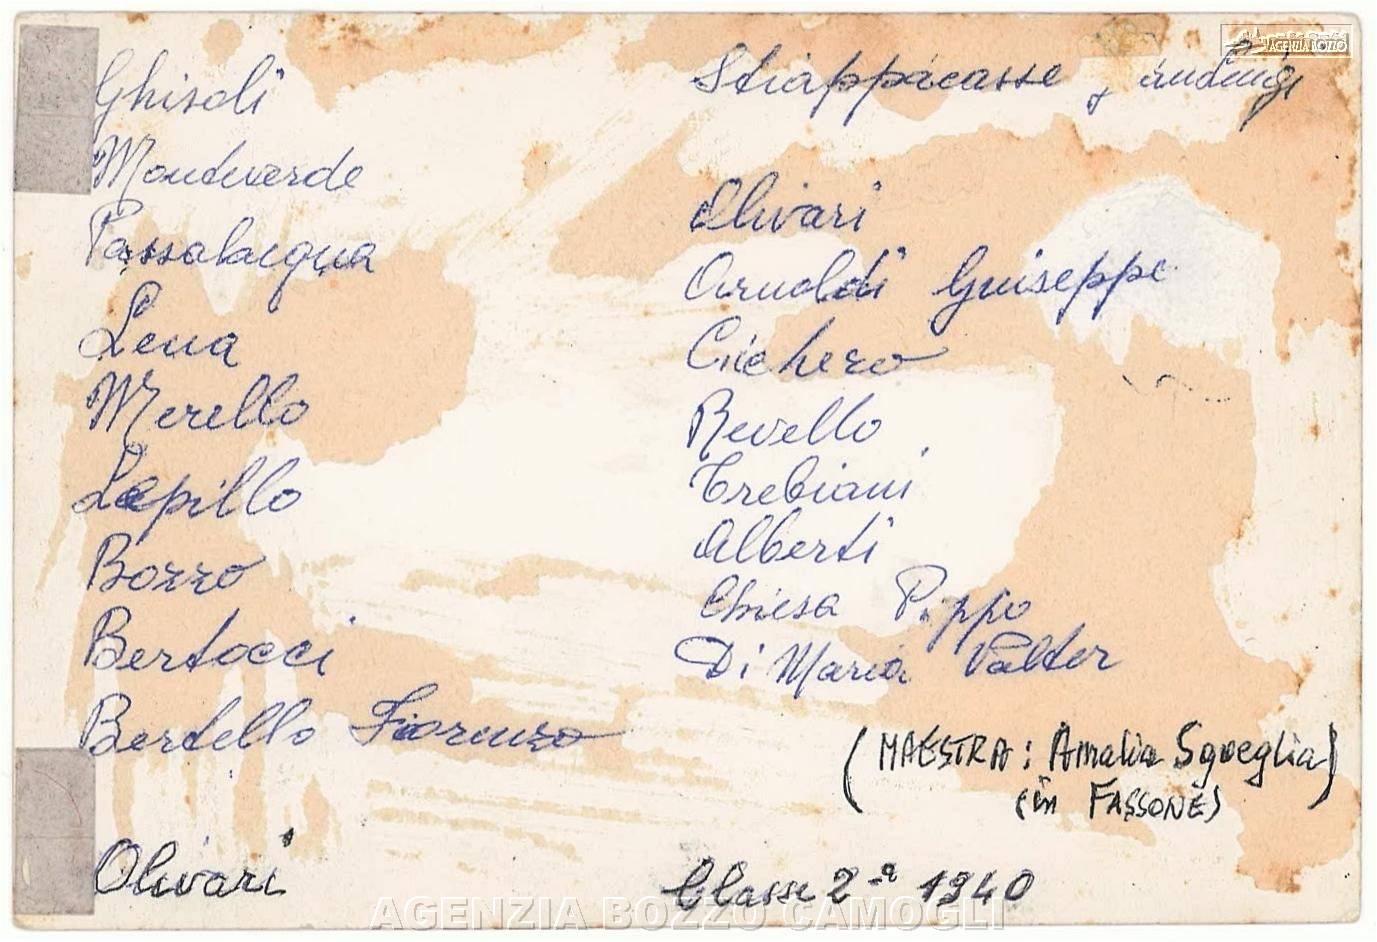 Ghisoli
Monteverde
Passalacqua
Lena
Merello
Lapillo
Bozzo
Bertocci
Bertello Fiorenzo
Olivari
Schiappacasse
Olivari
Arnoldi Guiseppe
Cichero
Revello
Trebiani
Alberti
Chiesa Pippo
Di Maria Valter
(MAESTRA: Amalia Sgoeglia)
(in FASSONE)
Classe 2ª 1940
AGENZIA BOZZO CAMOGLI
AGENZIA BOZZO